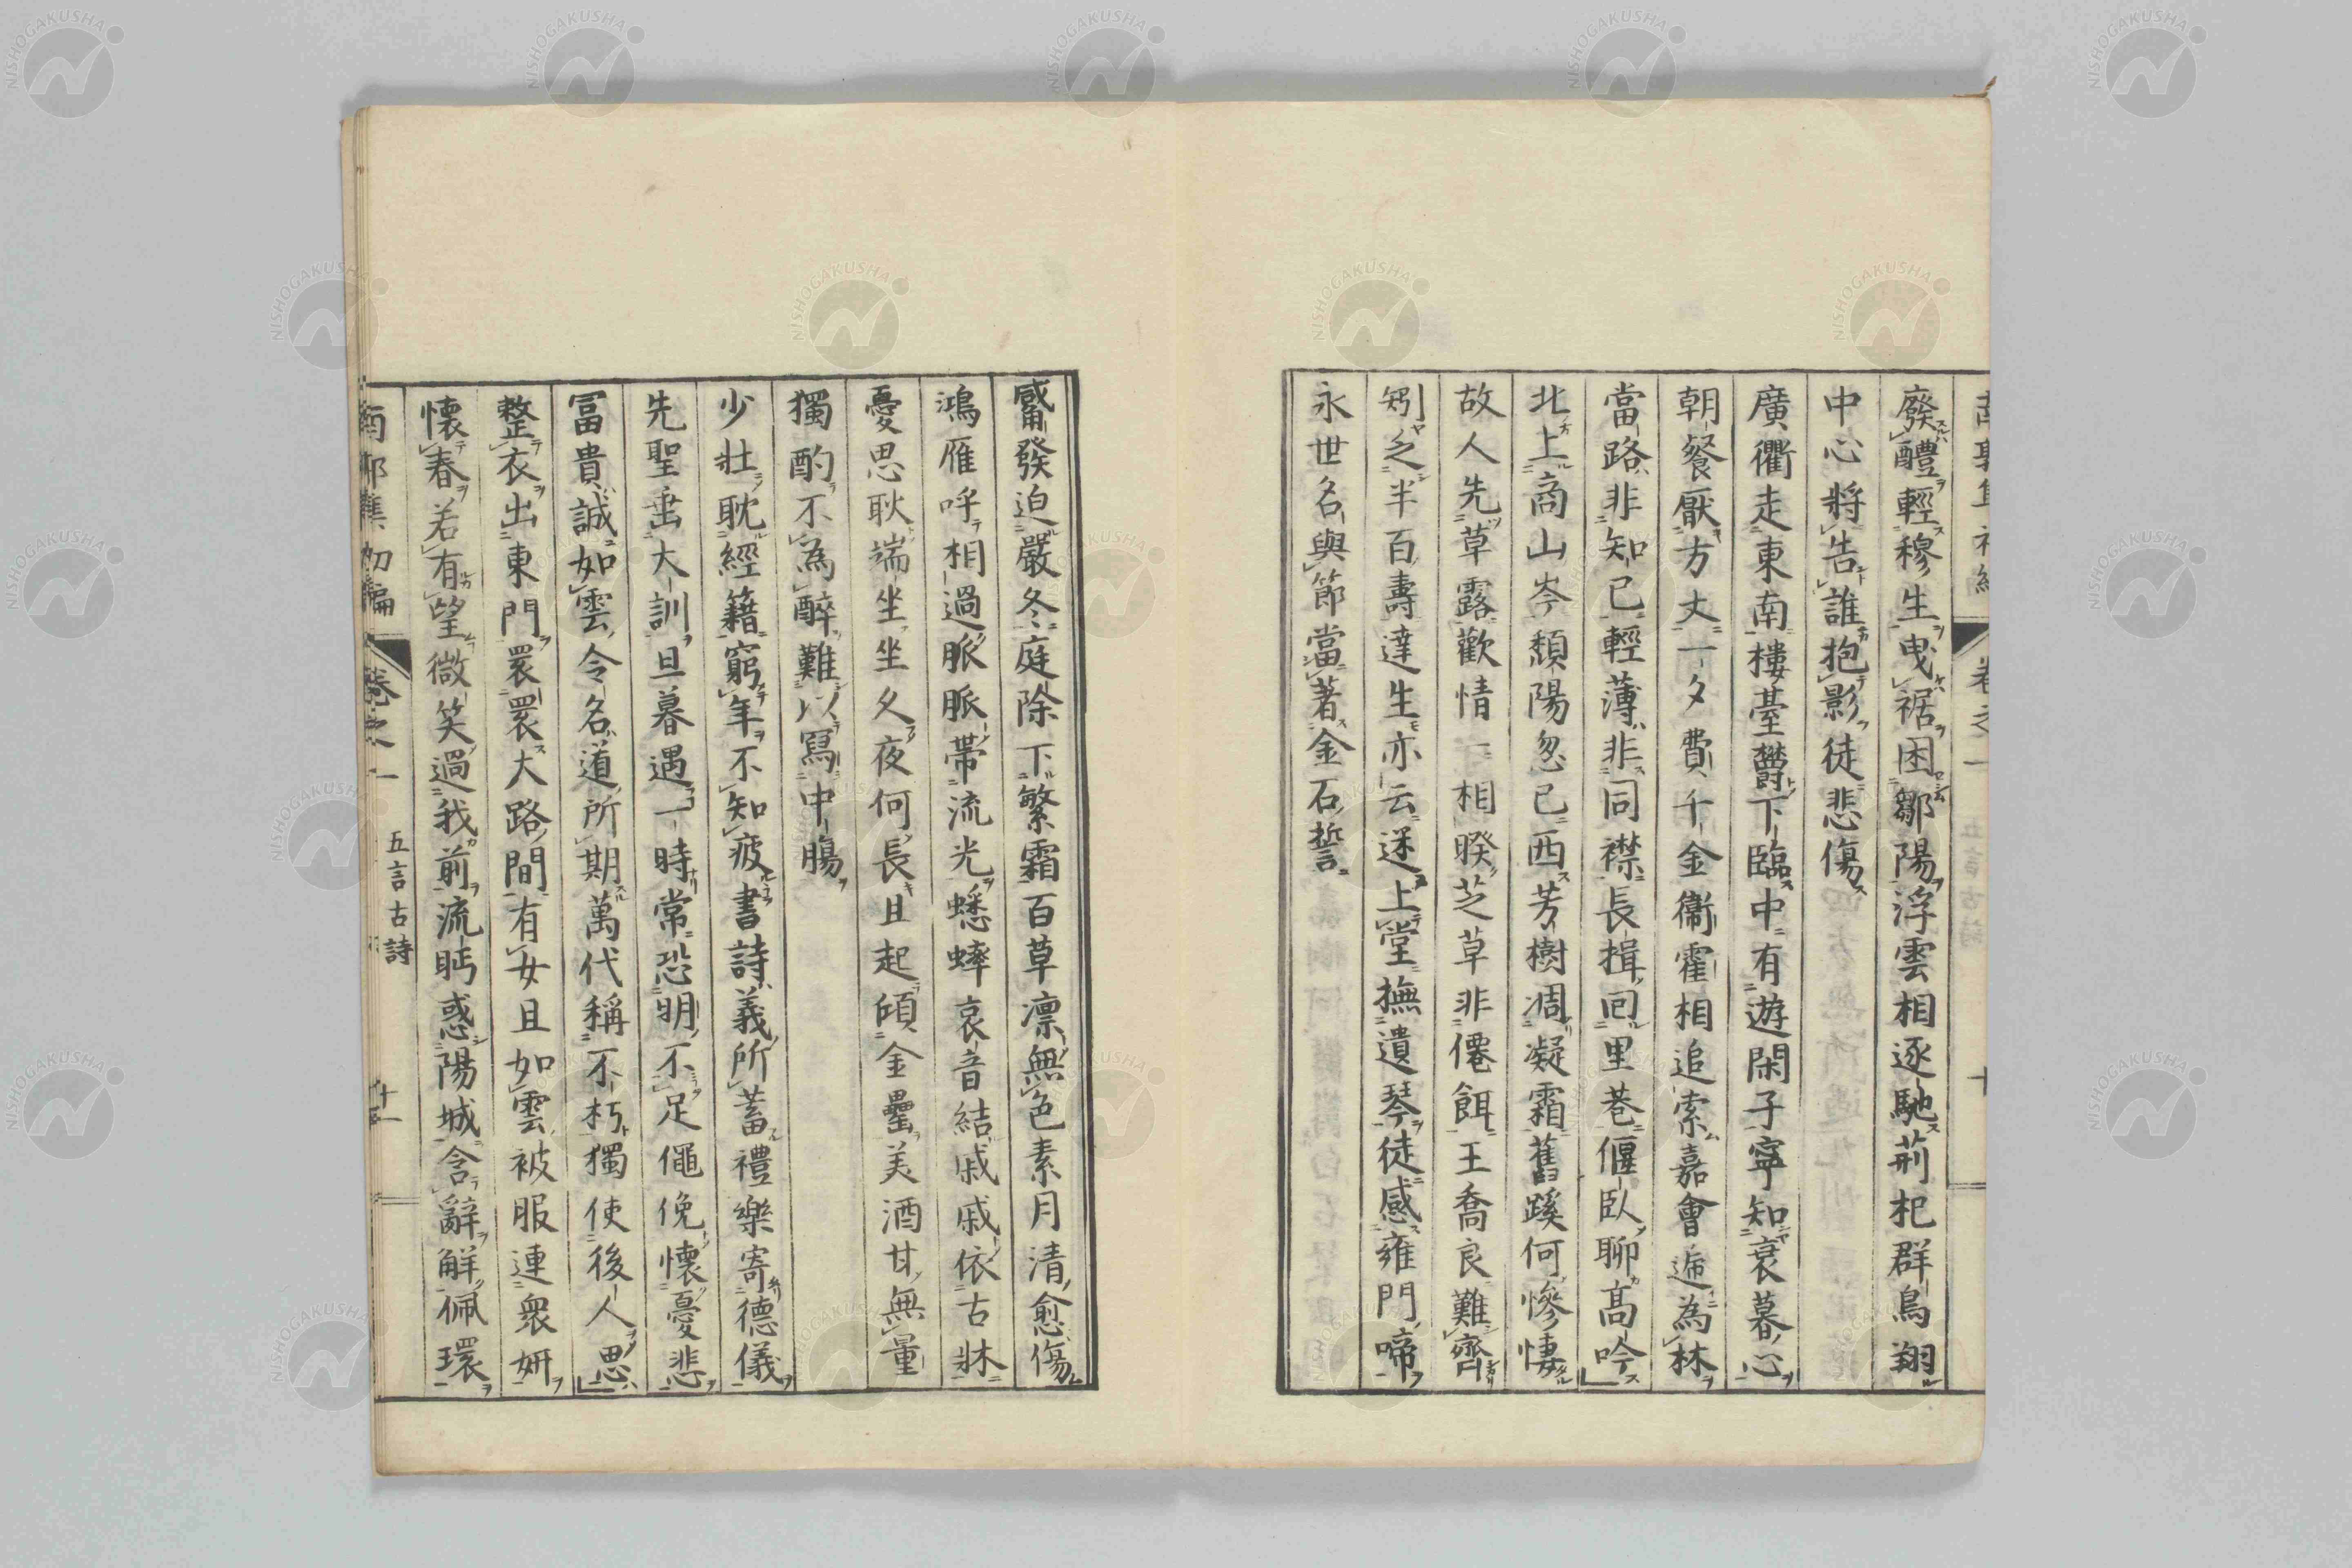 廢醴輕穆生曳裾困鄒陽浮雲相逐馳荊杞群鳥翔
中心將告誰抱影徒悲傷
廣衢走東南樓臺鬱下臨中有遊閑子寧知衰暮心
朝餐厭方丈一夕費千金衞霍相追索嘉會遞為林
當路非知己輕薄非同襟長揖回里巷偃臥聊高吟
北上商山岑頹陽忽已西芳樹凋凝霜舊蹊何慘悽
故人先草露歡情一相暌芝草非僊餌王喬良難齊
矧乏半百壽達生亦云迷上堂撫遺琴徒感雍門啼
永世名與節當著金石誓
觱發迫嚴冬庭除下繁霜百草凛無色素月清愈傷
鴻雁呼相過脈脈帶流光蟋蟀哀音結戚戚依古牀
憂思耿端坐坐久夜何長且起傾金罍美酒甘無量
獨酌不為醉難以寫中腸
少壯耽經籍窮年不知疲書詩義所蓄禮樂寄德儀
先聖垂大訓旦暮遇一時常恐明不足僶俛懷憂悲
冨貴誠如雲令名道所期萬代稱不朽獨使後人思
整衣出東門睘睘大路間有女且如雲被服連衆妍
懷春若有望微笑過我前流眄惑陽城含辭解佩環
南郭集初編 卷之一 五言古詩 十一